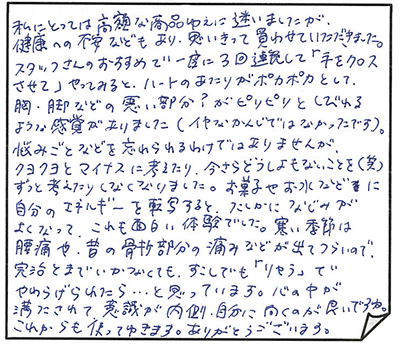 私にとっては高額な商品ゆえに迷いましたが、
健康への不安などもあり、思いきって買わせていただきました。
スタッフさんのおすすめで一度に3回連続して「手をクロス
させて」やってみると、ハートのあたりがポカポカとして、
胸・脚などの悪い部分？がピリピリとしびれる
ような感覚がありました（イヤなかんじではなかったです）。
悩みごとなどを忘れられるわけではありませんが、
クヨクヨとマイナスに考えたり、今さらどうしよもないことを（笑）
ずっと考えたりしなくなりました。お菓子やお水などに
自分のエネルギーを転写すると、たしかになじみが
よくなって、これも面白い体験でした。寒い季節は
腰痛や、昔の骨折部分の痛みなどが出てつらいので、
完治とまでいかなくても、すこしでも「りせら」で
やわらげられたら…と思っています。心の中が
満たされて意識が内側、自分に向くのが良いですね。
これからも使ってゆきます。ありがとうございます。